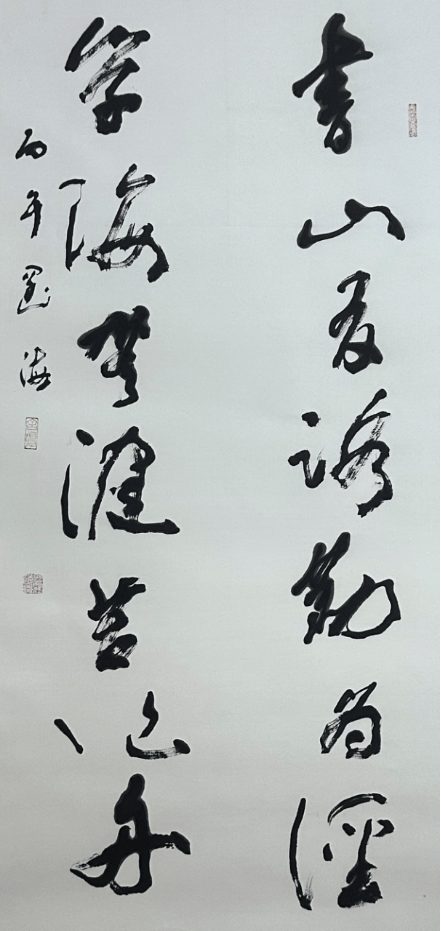 書山有路勤為徑
學海無涯苦作舟
丙午墨海